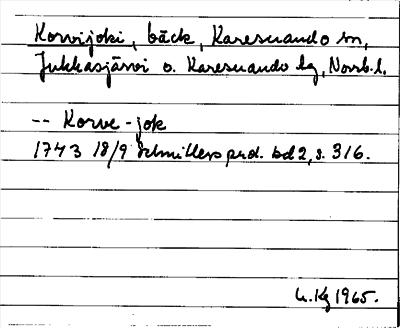 Korvijoki, bäck, Karesuando sn,
Jukkasjärvi o. Karesuando lg, Norrb. l.
-- Korve-jok
1743 18/9 Schnitlers prot. bd 2, s. 316.
U. Kg 1965.